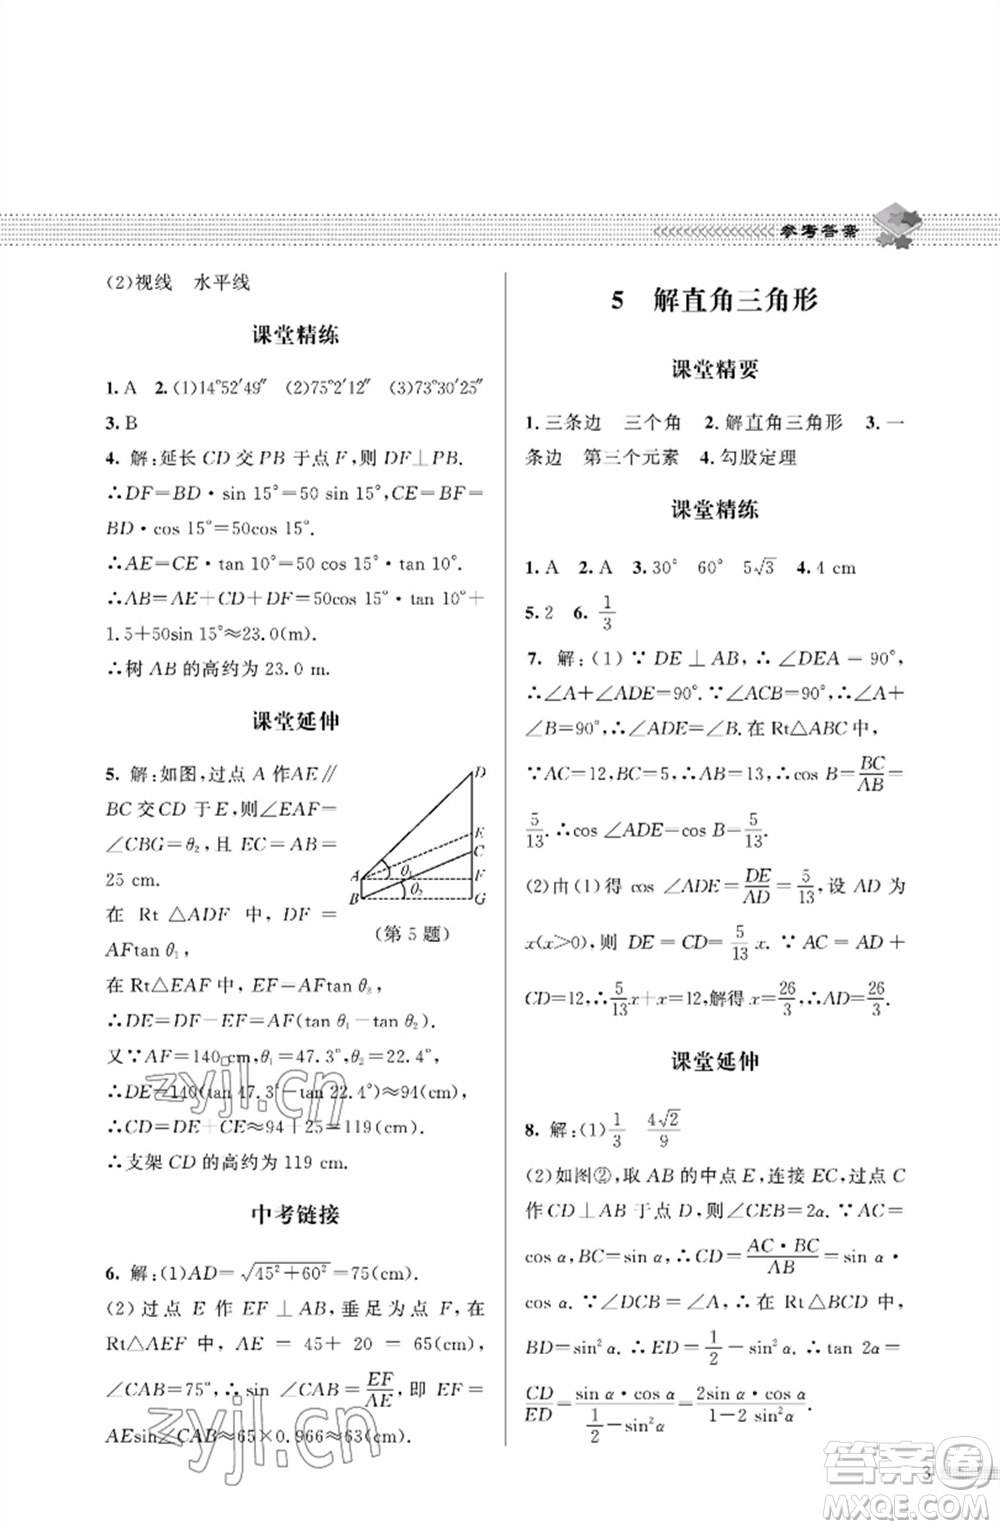 参考答案
(2)视线　水平线
课堂精练
1. A　2. (1)14°52′49″　(2)75°2′12″　(3)73°30′25″
3. B
4. 解:延长 CD 交 PB 于点 F,则 DF⊥PB.
∴DF=BD·sin 15°=50sin 15°,CE=BF=
BD·cos 15°=50cos 15°.
∴AE=CE·tan 10°=50cos 15°·tan 10°.
∴AB=AE+CD+DF=50cos 15°·tan 10°+
1.5+50sin 15°≈23.0(m).
∴树 AB 的高约为 23.0 m.
课堂延伸
5. 解:如图,过点 A 作AE∥
BC交CD于E,则∠EAF=
∠CBG=θ₂,且 EC=AB=
25 cm.
在 Rt△ADF 中,DF=
AFtan θ₁,
在 Rt△EAF 中,EF=AFtan θ₂,
∴DE=DF-EF=AF(tan θ₁-tan θ₂).
又∵AF=140 cm,θ₁=47.3°,θ₂=22.4°,
∴DE=140(tan 47.3°-tan 22.4°)≈94(cm).
∴CD=DE+CE≈94+25=119(cm).
∴支架 CD 的高约为 119 cm.
D
E
C
A θ₁ F
B θ₂ G
(第 5 题)
中考链接
6. 解:(1)AD=√(45²+60²)=75(cm).
(2)过点 E 作 EF⊥AB,垂足为点 F,在
Rt△AEF 中,AE=45+20=65(cm),
∠CAB=75°,∴sin ∠CAB=EF/AE,即 EF=
AEsin∠CAB≈65×0.966≈63(cm).
5　解直角三角形
课堂精要
1. 三条边　三个角　2. 解直角三角形　3. 一
条边　第三个元素　4. 勾股定理
课堂精练
1. A　2. A　3. 30°　60°　5√3　4. 4 cm
5. 2　6. 1/3
7. 解:(1)∵DE⊥AB,∴∠DEA=90°,
∴∠A+∠ADE=90°.∵∠ACB=90°,∴∠A+
∠B=90°,∴∠ADE=∠B.在 Rt△ABC 中,
∵AC=12,BC=5,∴AB=13,∴cos B=BC/AB=
5/13.∴cos ∠ADE=cos B=5/13.
(2)由(1)得 cos ∠ADE=DE/AD=5/13,设 AD 为
x(x>0),则 DE=CD=5/13 x.∵AC=AD+
CD=12,∴5/13 x+x=12,解得 x=26/3,∴AD=26/3.
课堂延伸
8. 解:(1)1/3　4√2/9
(2)如图②,取 AB 的中点 E,连接 EC,过点 C
作 CD⊥AB 于点 D,则∠CEB=2α.∵AC=
cos α,BC=sin α,∴CD=AC·BC/AB=sin α·
cos α.∵∠DCB=∠A,∴在 Rt△BCD 中,
BD=sin² α.∴ED=1/2-sin² α.∴tan 2α=
CD/ED=(sin α·cos α)/(1/2-sin² α)=(2sin α·cos α)/(1-2sin² α).
3
zyjl.cn
zyjl.cn
答案圈
MXQE.COM